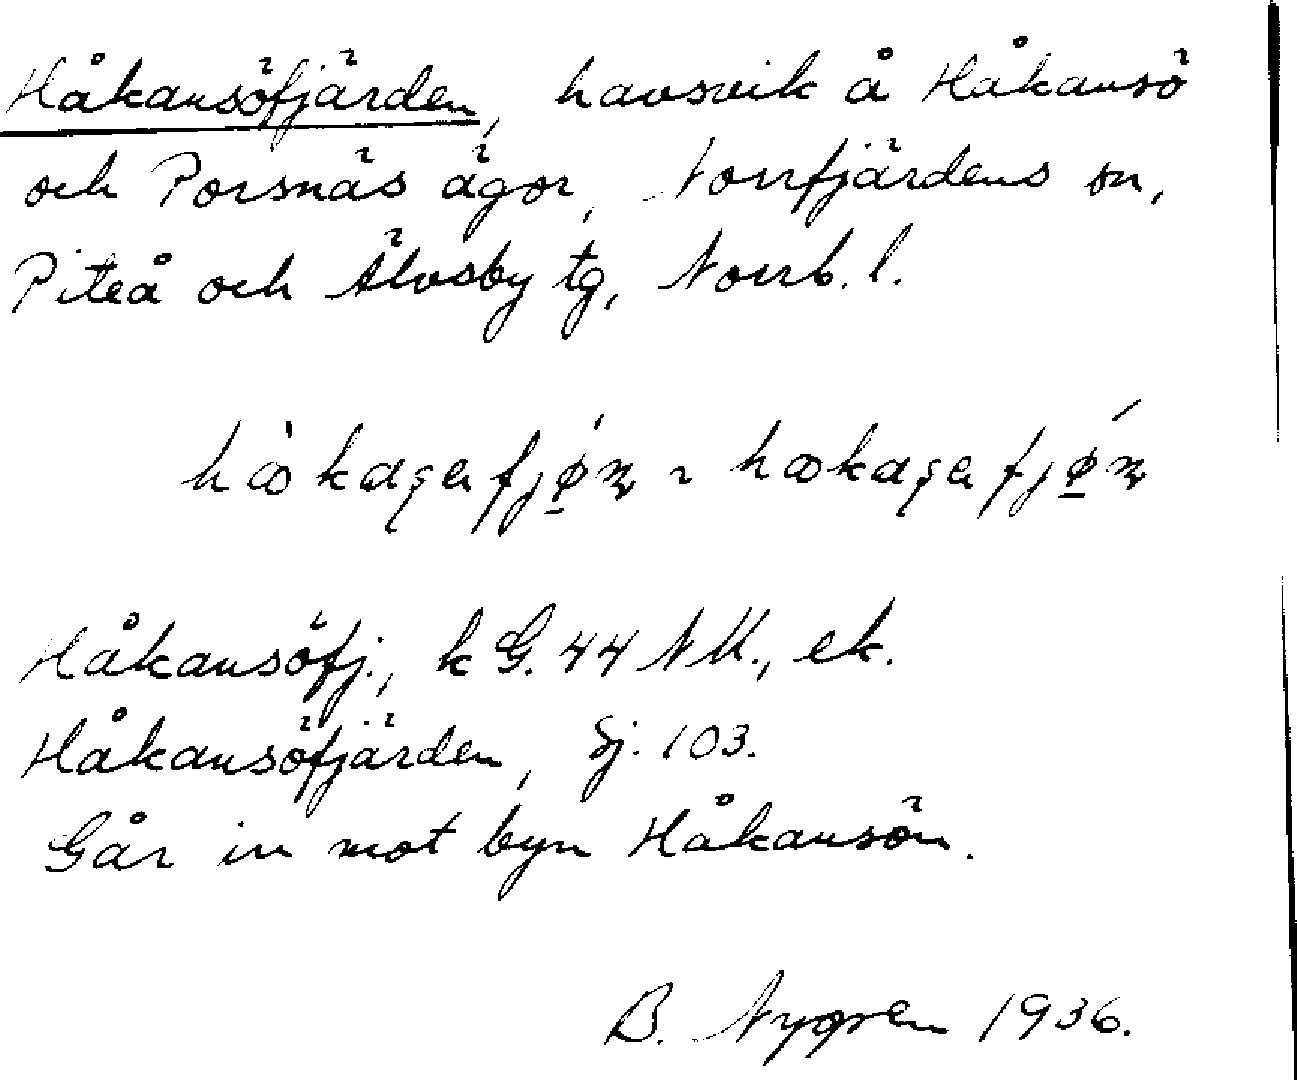 Håkansöfjärden, havsvik å Håkansö
och Porsnäs ägor, Norrfjärdens sn,
Piteå och Älvsby tg, Norrb. l.
Håkansöfj., k G. 44 NU., ek.
Håkansöfjärden, Sj. 103.
Går in mot byn Håkansön.
B. Nygren 1936.